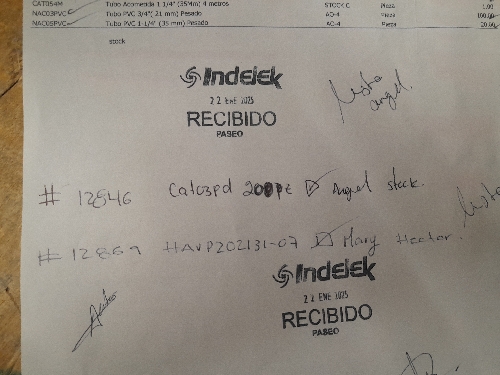 CAT054M Tubo Acometida 1 1/4" (35Mm) 4 metros STOCK C Pieza 1.99
NAC03PVC Tubo PVC 3/4"( 21 mm) Pesado AO-4 Pieza 100.00
NAC05PVC Tubo PVC 1-1/4" (35 mm) Pesado AO-4 Pieza 20.00
stock
Indelek
22 ENE 2025
RECIBIDO
PASEO
Listo
angel.
# 12846 Cat03pd 200pz Angel stock.
Listo
# 12869 HAVP202131-07 Mary Hector.
Indelek
22 ENE 2025
RECIBIDO
PASEO